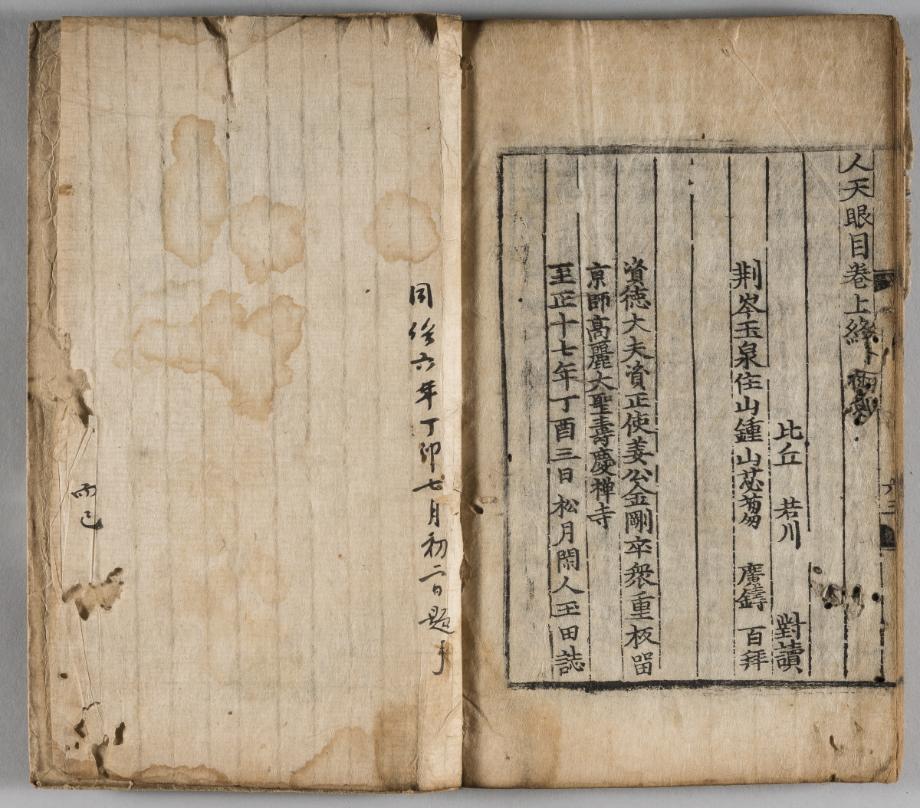 人天眼目卷上終
比丘 若川 對讀
荆岑玉泉住山鍾山苾蒭 廣鑄 百拜
資德大夫資正使姜公金剛卒衆重板留
京師高麗大聖壽慶禅寺
至正十七年丁酉三日松月閑人玉田誌
同治六年丁卯七月初二日題
而已